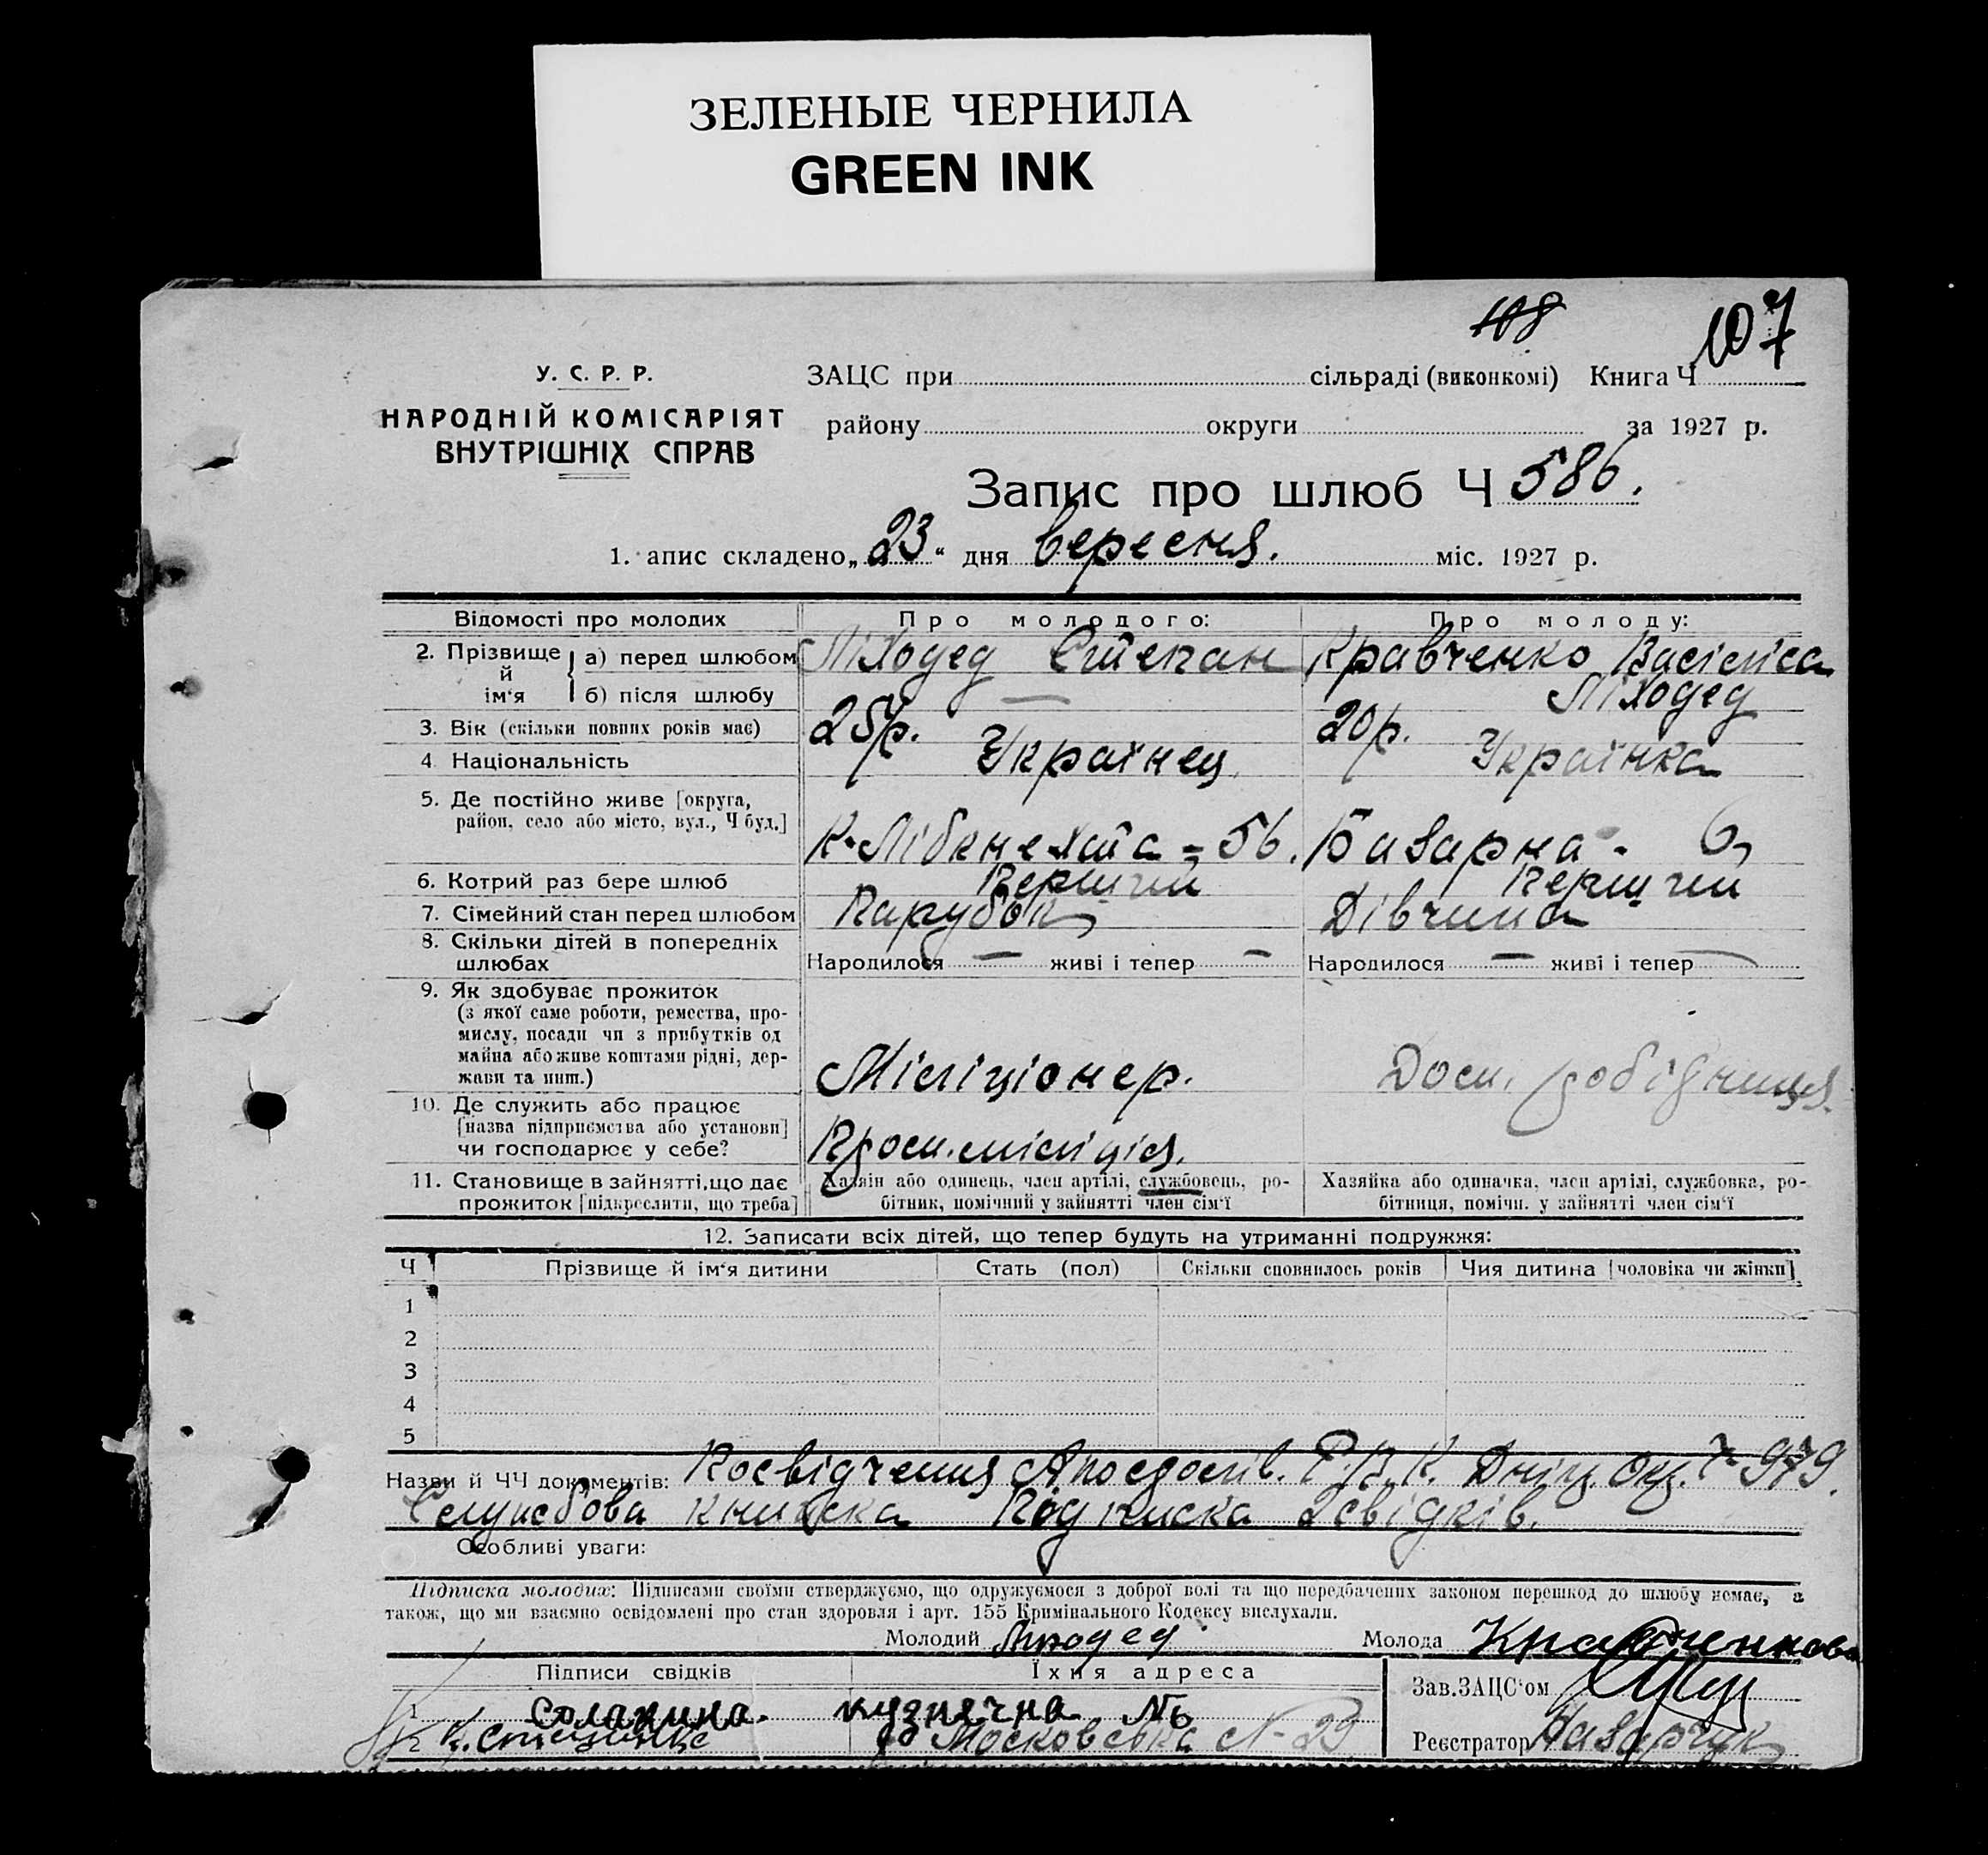 ЗЕЛЕНЫЕ ЧЕРНИЛА
GREEN INK
108
107
У. С. Р. Р.
НАРОДНІЙ КОМІСАРІЯТ
ВНУТРІШНІХ СПРАВ
ЗАЦС при сільраді (виконкомі) Книга Ч
району округи за 1927 р.
Запис про шлюб Ч 586.
1. апис складено „23“ дня вересня. міс. 1927 р.
Відомості про молодих Про молодого: Про молоду:
2. Прізвище й ім‘я а) перед шлюбом Ліходед Степан Кравченко Васіліса
б) після шлюбу — Ліходед
3. Вік (скільки повних років має) 25р. 20р.
4. Національність Українец Українка
5. Де постійно живе [округа,
район, село або місто, вул., Ч буд.] К-Лібкнехта - 56. Базарна - 6
6. Котрий раз бере шлюб Перший Перший
7. Сімейний стан перед шлюбом Парубок Дівчина
8. Скільки дітей в попередніх
шлюбах Народилося — живі і тепер — Народилося — живі і тепер —
9. Як здобуває прожиток
(з якої саме роботи, ремества, про-
мислу, посади чи з прибутків од
майна або живе коштами рідні, дер-
жави та инш.) Міліціонер. Дом. робідниця.
10. Де служить або працює
[назва підприємства або установи]
чи господарює у себе? Пром. міліція.
11. Становище в зайнятті, що дає
прожиток [підкреслити, що треба]
Хазяїн або одинець, член артілі, службовець, ро-
бітник, помічний у зайнятті член сім‘ї
Хазяйка або одиначка, член артілі, службовка, ро-
бітниця, помічн. у зайнятті член сім‘ї
12. Записати всіх дітей, що тепер будуть на утриманні подружжя:
Ч Прізвище й ім‘я дитини Стать (пол) Скільки сповнилось років Чия дитина [чоловіка чи жінки]
1
2
3
4
5
Назви й ЧЧ документів: Посвідчення Апостолів. Р.В.К. Дніп. Окр. Ч 979.
Служебова книжка Підписка 2 свідків.
Особливі уваги:
Підписка молодих: Підписами своїми стверджуємо, що одружуємося з доброї волі та що передбачених законом перешкод до шлюбу немає, а
також, що ми взаємно освідомлені про стан здоровля і арт. 155 Кримінального Кодексу вислухали.
Молодий Молода
Підписи свідків Їхня адреса
Зав.ЗАЦС‘ом
1 Солонина. кузнечна №6
2 Московська N-29
Реєстратор Назарчук